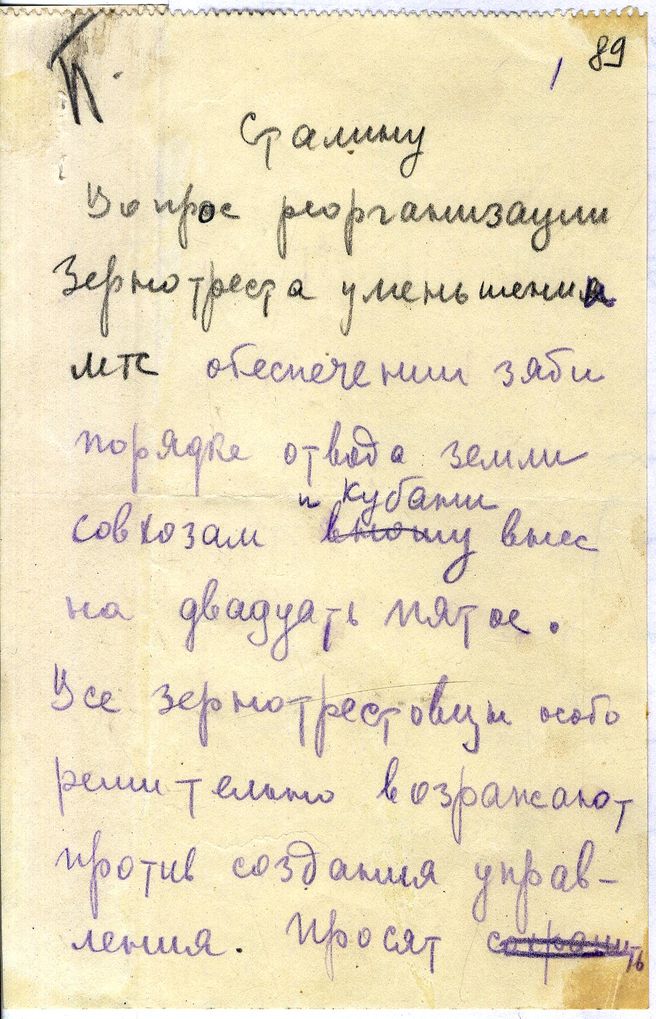 П.
1 89
Сталину
Вопрос реорганизации
Зернотреста уменьшения
мтс обеспечении зяби
порядке отвода земли
и Кубани
совхозам вношу внес
на двадцать пятое.
Все зернотрестовцы особо
решительно возражают
против создания управ-
ления. Просят сохранить